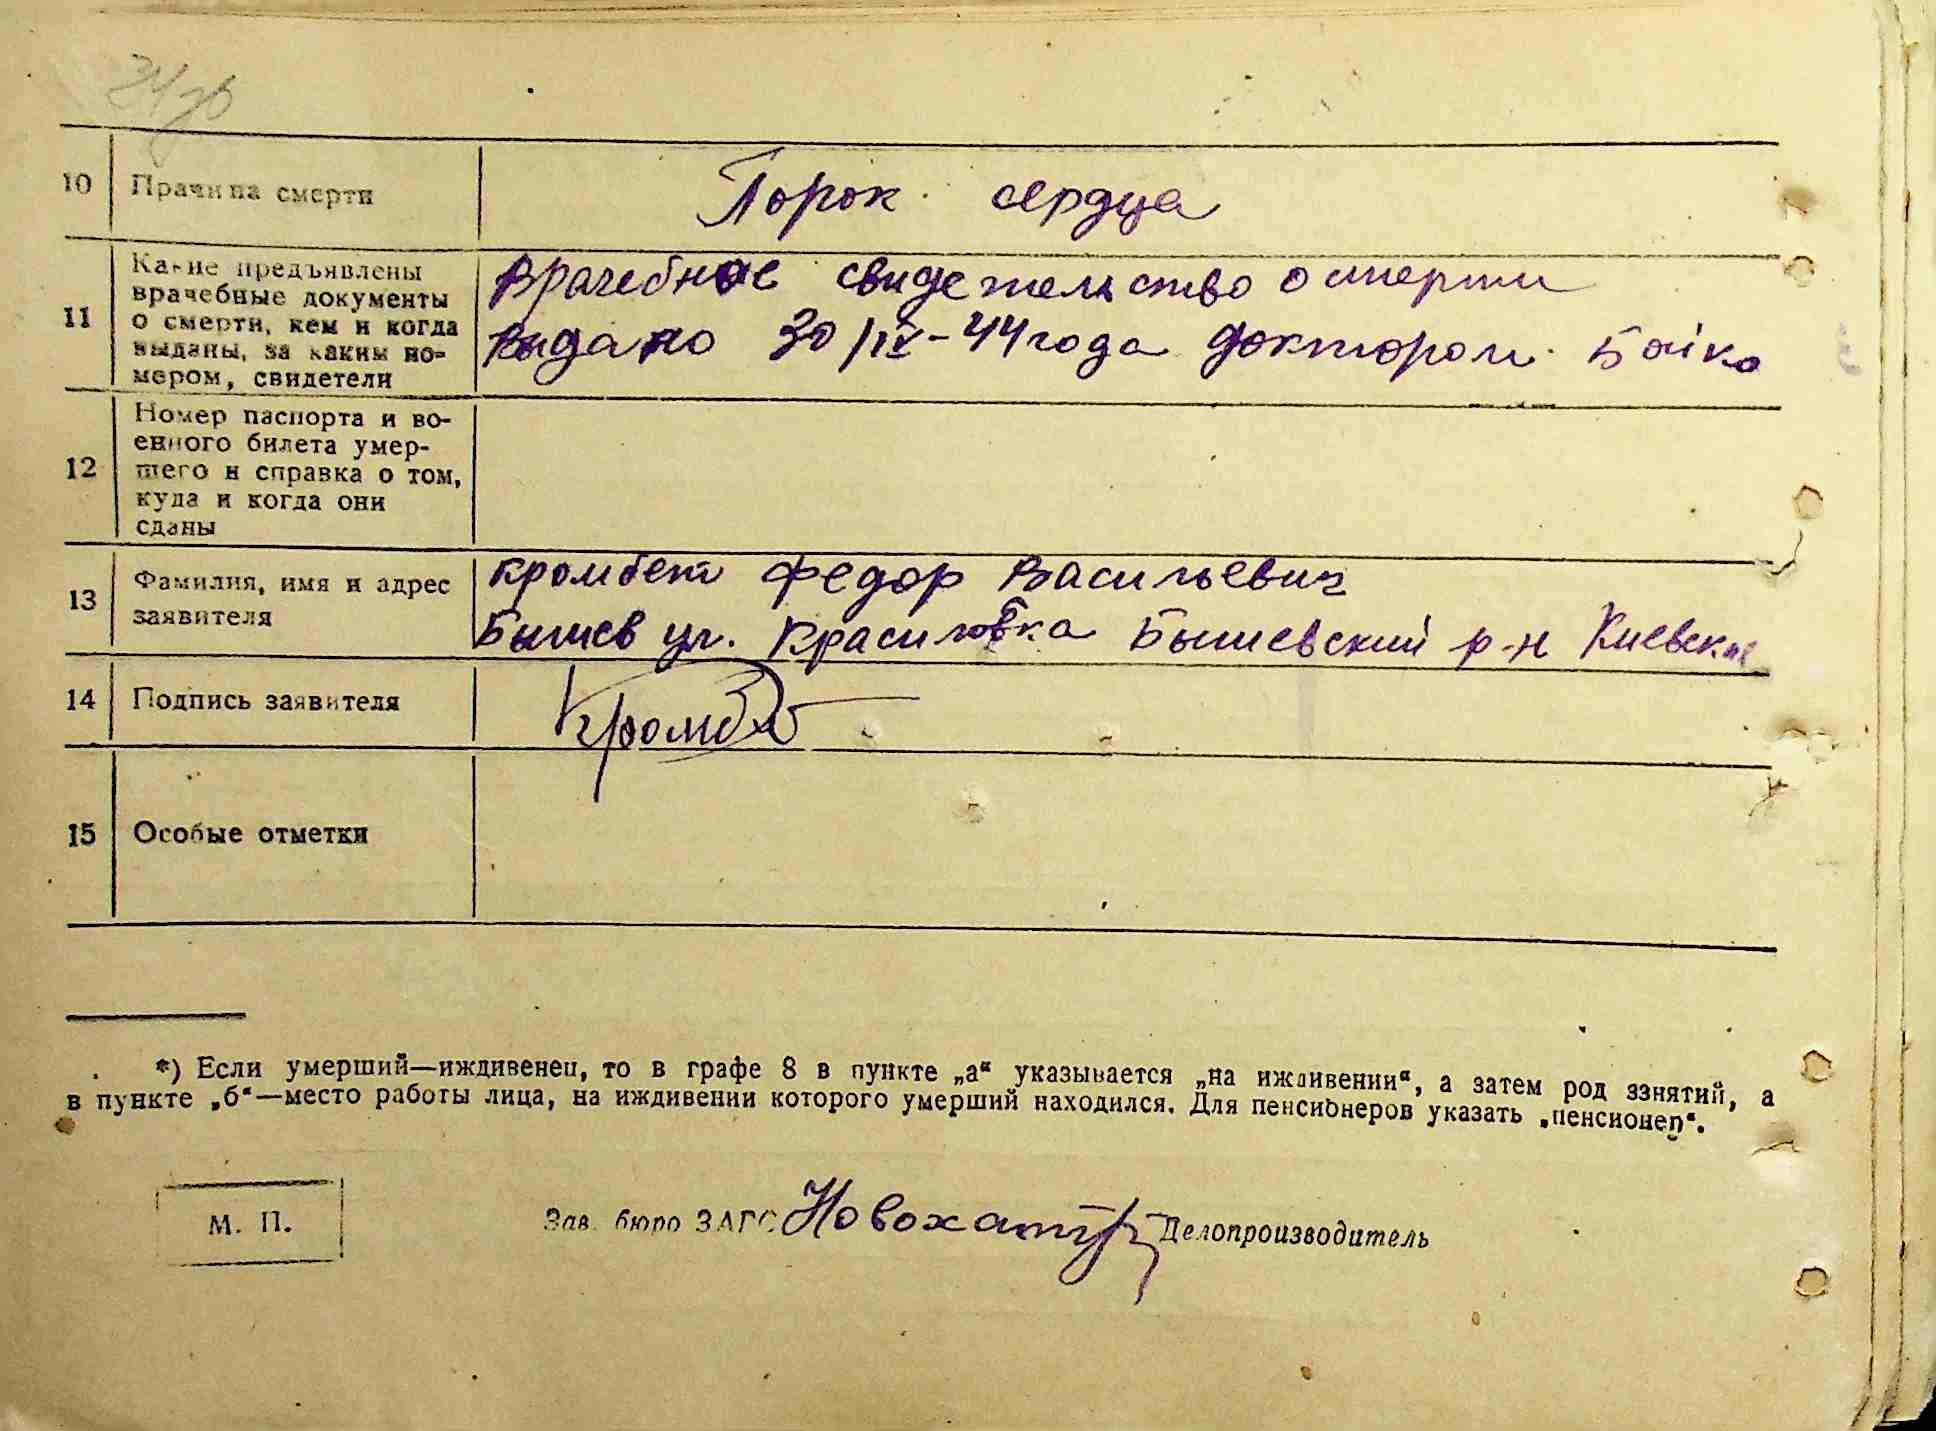 10 Причина смерти Порок сердца
11 Какие предъявлены врачебные документы о смерти, кем и когда выданы, за каким но-
мером, свидетели
Врачебное свидетельство о смерти
выдано 30/IX-44 года доктором Бойко
12 Номер паспорта и во-
енного билета умер-
шего и справка о том,
куда и когда они
сданы
13 Фамилия, имя и адрес
заявителя
Кромбет Федор Васильевич
Бышев ул. Красиловка Бышевский р-н Киевск
14 Подпись заявителя Кромбет
15 Особые отметки
*) Если умерший—иждивенец, то в графе 8 в пункте „а“ указывается „на иждивении“, а затем род ззнятий, а
в пункте „б“—место работы лица, на иждивении которого умерший находился. Для пенсионеров указать „пенсионер“.
М. П. Зав. бюро ЗАГС Делопроизводитель